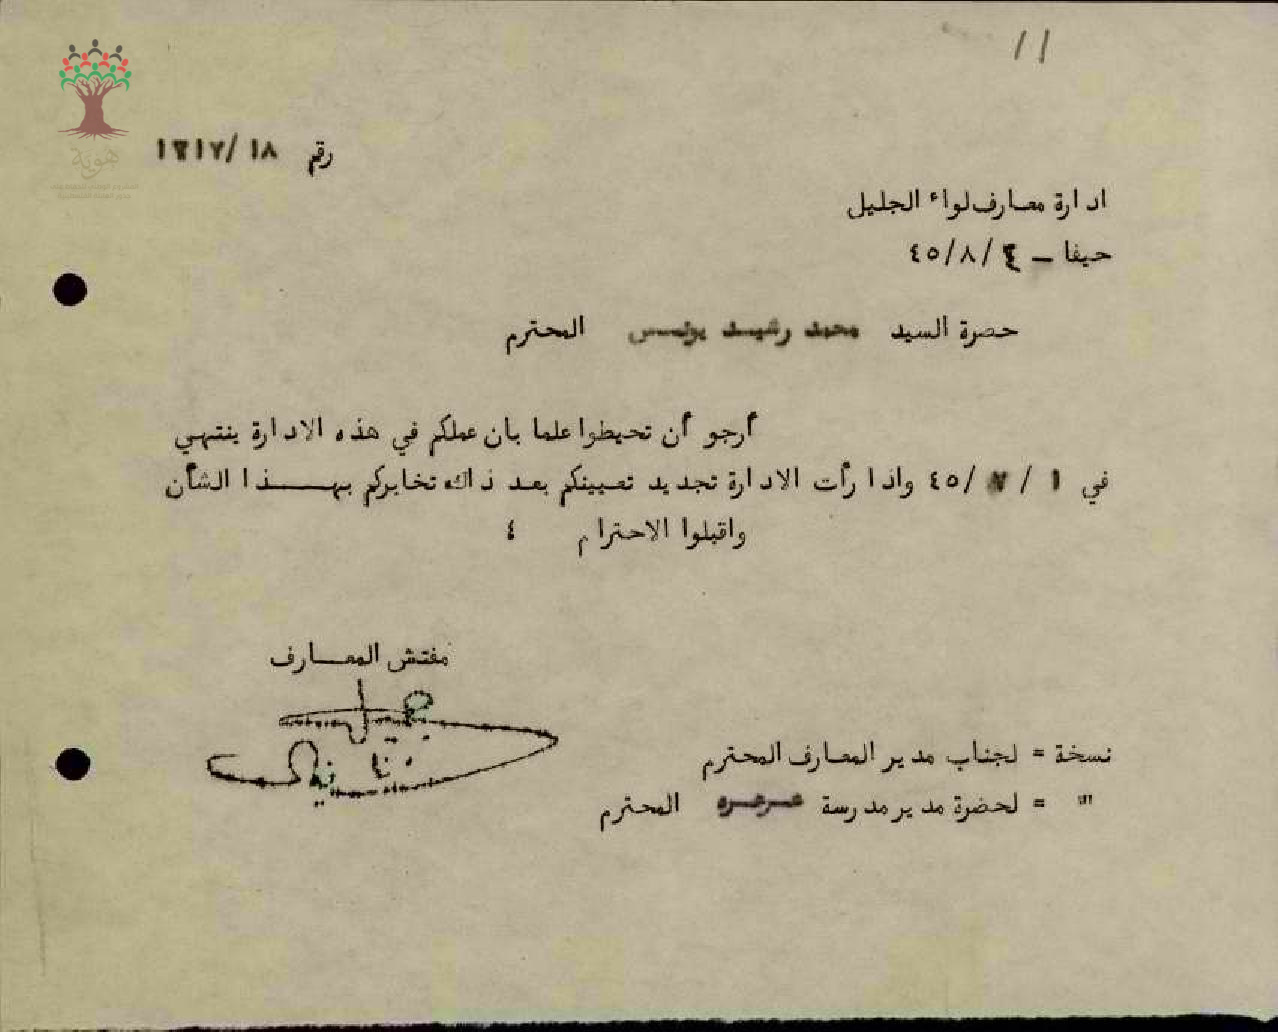 ١١
هوية
رقم ١٨ /١٢١٧
ادارة معارف لواء الجليل
حيفا – ٤/ ٤٥/٨
حضرة السيد محمد رشيد يونس المحترم
أرجو أن تحيطوا علما بان عملكم في هذه الادارة ينتهي
في ١ / ٧ /٤٥ واذا رأت الادارة تجديد تعيينكم بعد ذلك تخابركم بهـــذا الشأن
واقبلوا الاحترام ٤
مفتش المعـــارف
نسخة = لجناب مدير المعارف المحترم
" = لحضرة مدير مدرسة عرعره المحترم